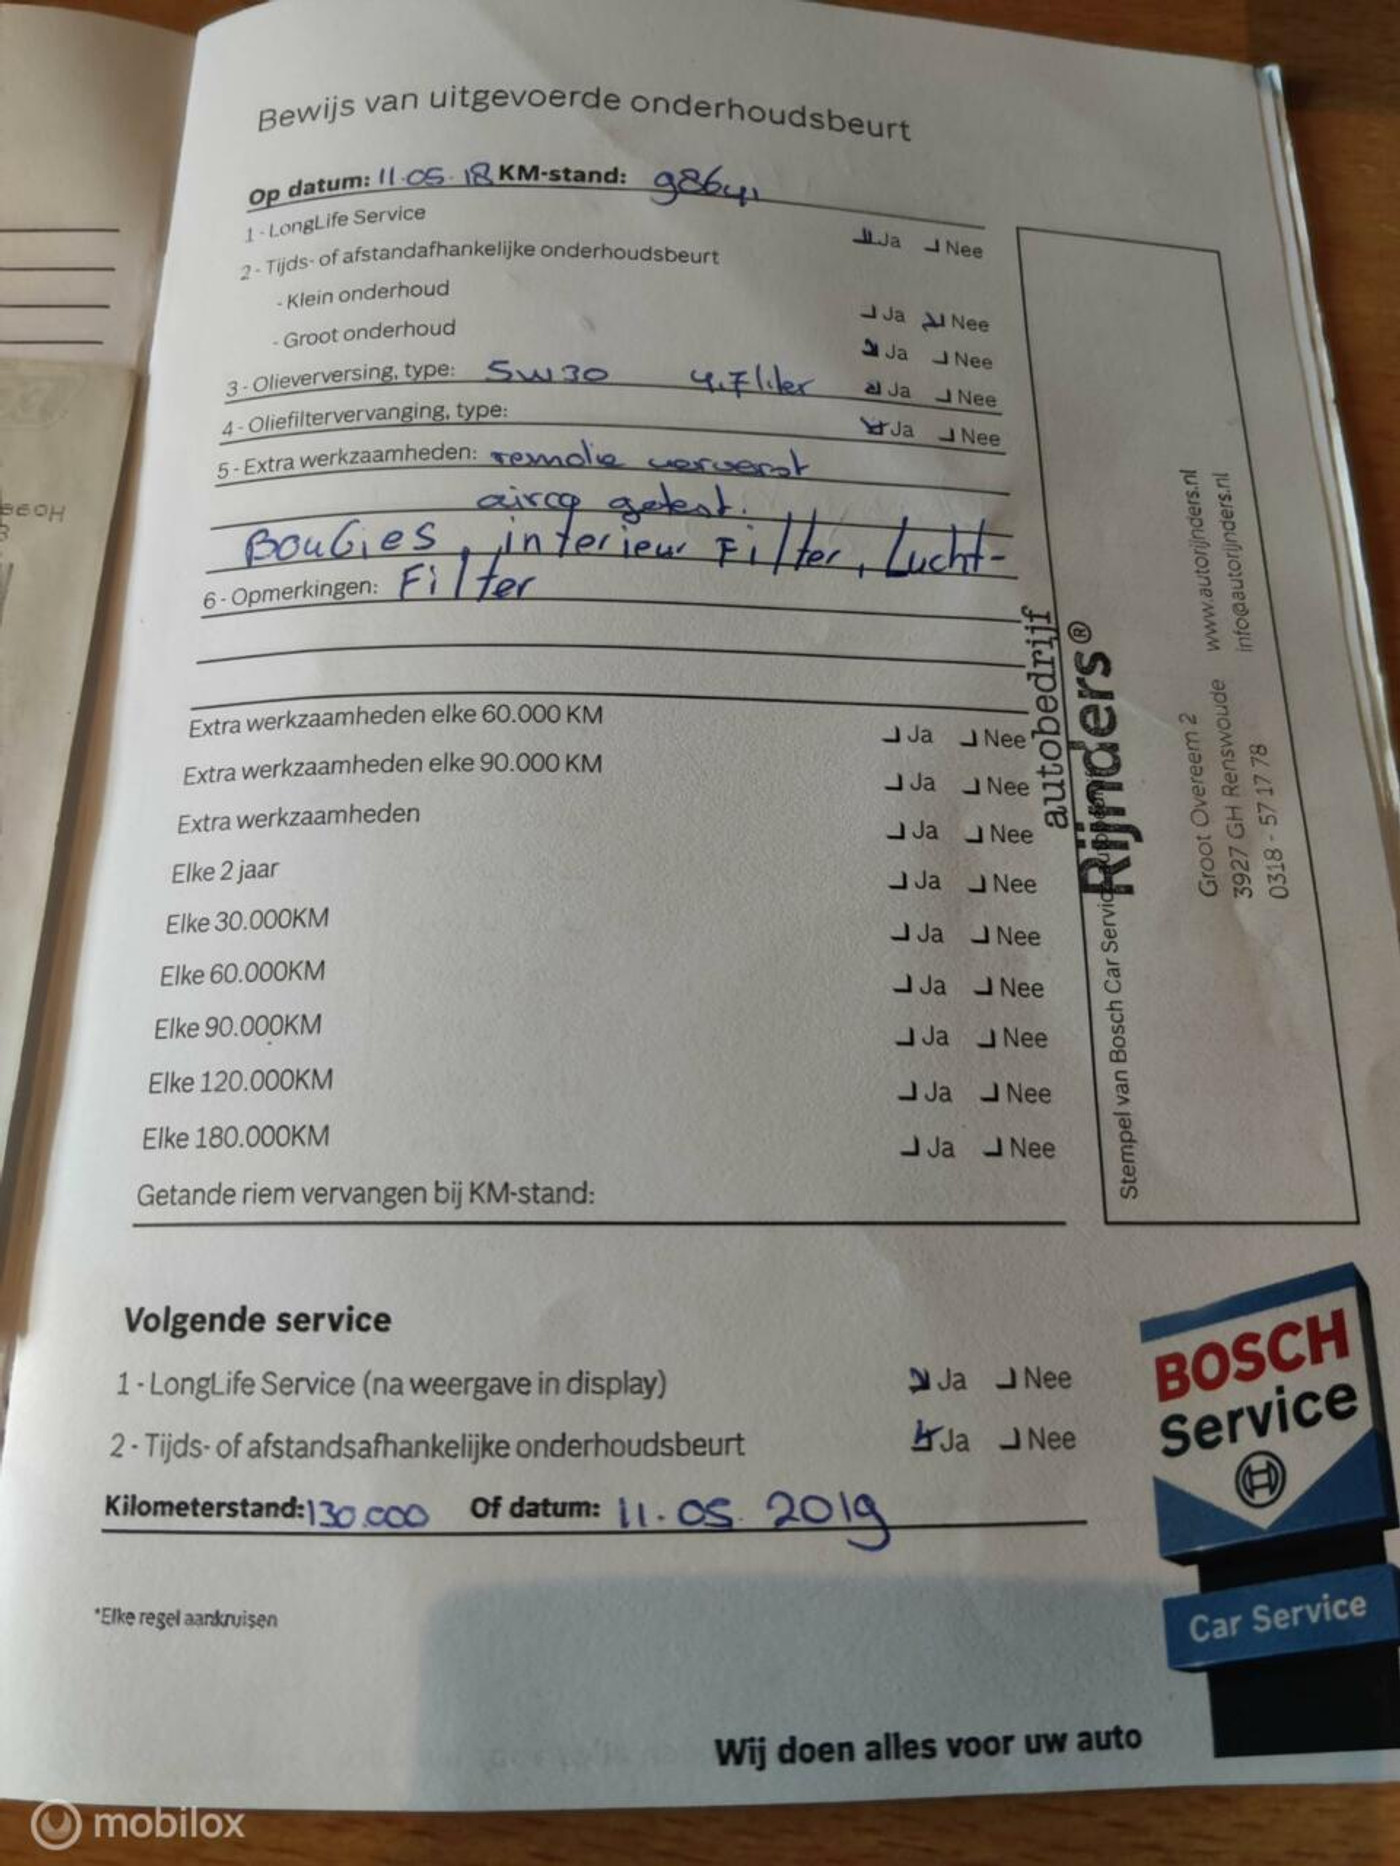 Bewijs van uitgevoerde onderhoudsbeurt
Op datum: 11.05.18 KM-stand: 98641
1 - LongLife Service Ja Nee
2 - Tijds- of afstandafhankelijke onderhoudsbeurt
- Klein onderhoud Ja Nee
- Groot onderhoud Ja Nee
3 - Olieverversing, type: 5W30 4,7 liter Ja Nee
4 - Oliefiltervervanging, type: Ja Nee
5 - Extra werkzaamheden: remolie ververst
airco getest.
BouGies, interieur Filter, Lucht-
6 - Opmerkingen: Filter
Extra werkzaamheden elke 60.000 KM Ja Nee
Extra werkzaamheden elke 90.000 KM Ja Nee
Extra werkzaamheden Ja Nee
Elke 2 jaar Ja Nee
Elke 30.000KM Ja Nee
Elke 60.000KM Ja Nee
Elke 90.000KM Ja Nee
Elke 120.000KM Ja Nee
Elke 180.000KM Ja Nee
Getande riem vervangen bij KM-stand:
autobedrijf
Rijnders®
Stempel van Bosch Car Servic
Groot Overeem 2 www.autorijnders.nl
3927 GH Renswoude info@autorijnders.nl
0318 - 57 17 78
Volgende service
1 - LongLife Service (na weergave in display) Ja Nee
2 - Tijds- of afstandsafhankelijke onderhoudsbeurt Ja Nee
Kilometerstand: 130.000 Of datum: 11.05.2019
*Elke regel aankruisen
BOSCH
Service
Car Service
Wij doen alles voor uw auto
mobilox